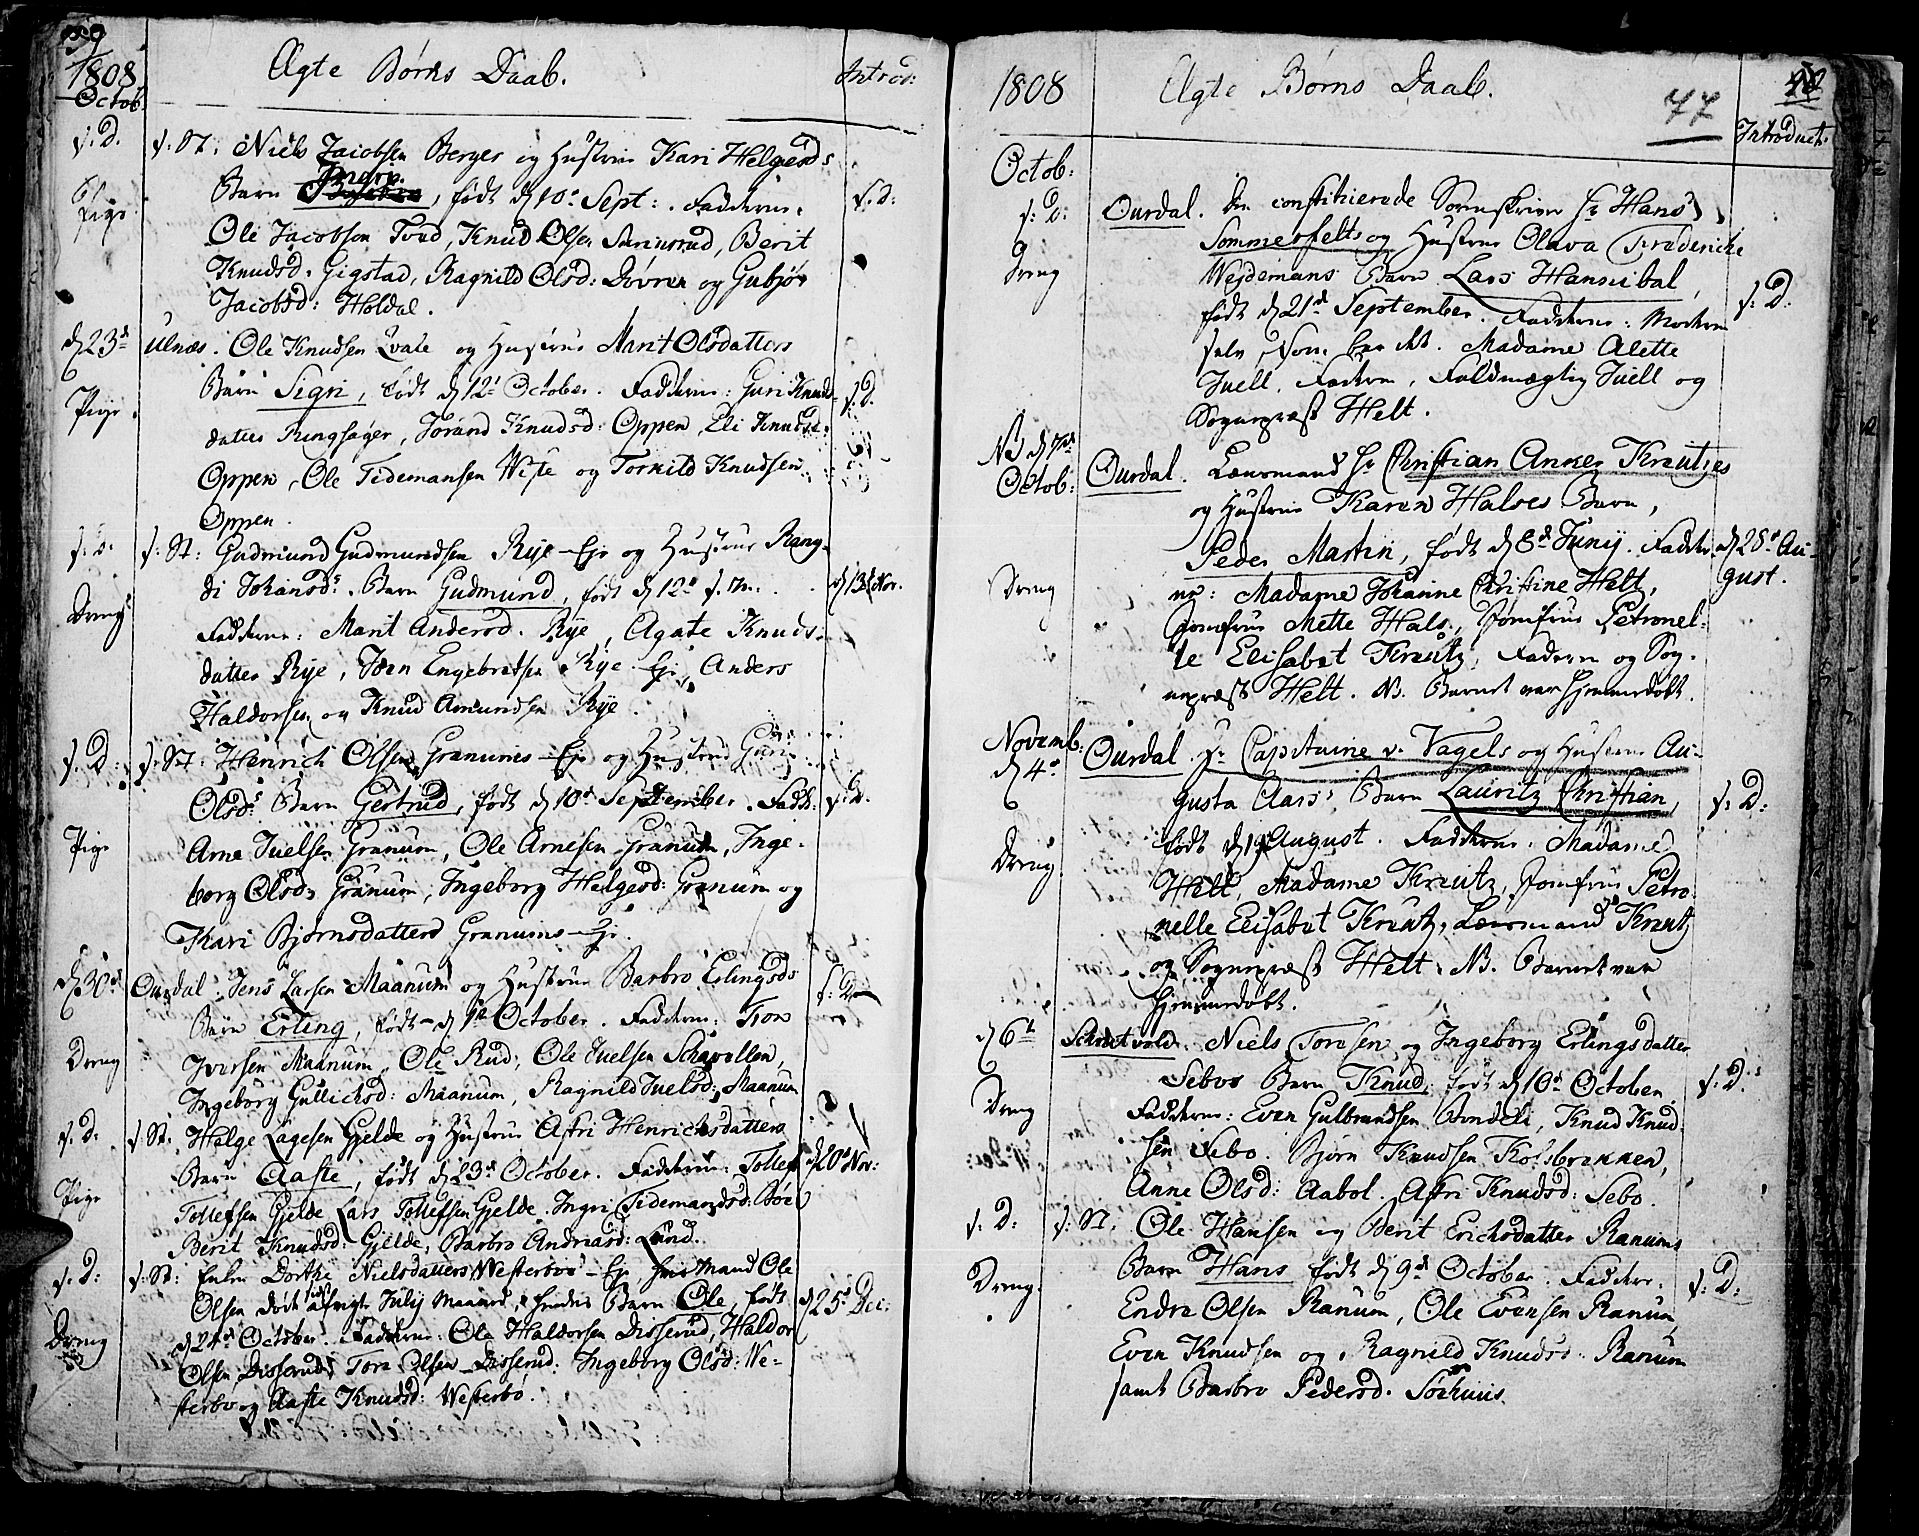 89
1808
Ægte Børns Daab.
Introd:
Octob.
s. D. s. St: Niels Jacobsen Berger og Hustrue Kari Helgesds
Pige Barn, født d 10d Sept: Faddere: s. D:
Ole Jacobsen Tved, Knud Olsen, Berit
Knudsd. Gigstad, Ragnild Olsd: Døvren og Gubjør
Jacobsd: Holdal.
d 23d Ulnæs. Ole Knudsen Qvale og Hustrue Marit Olsdatters
Pige Barn Sigri, født d 12d October. Faddere: Guri Knuds- s. D.
datter Ringsager, Jørand Knudsd: Oppen, Eli Knudsd:
Oppen, Ole Tidemansen Wiste og Torkild Knudsen
Oppen.
s. D. s. St: Gudmund Gudmundsen Rye-Eje og Hustrue Rang-
di Johansd: Barn Gudmund, født d 12d s. M. d 13d Nov.
Dreng Faddere: Marit Andersd. Rye, Agate Knuds-
datter Rye, Iver Engebretsen Rye-Eje, Anders
Haldorsen og Knud Amundsen Rye.
s. D: s. St: Henrich Olsen Granums-Eje og Hustrue Guri
Olsd: Barn Gertrud, født d 10d September. Fadd: s. D.
Pige Arne Juelsen Granum, Ole Arnesen Granum, Inge-
borg Olsd: Granum, Ingeborg Helgesd: Granum og
Kari Bjørnsdatter Granums-Eje.
d 30d Ourdal. Jens Larsen Maanum og Hustrue Barbro Erlingsds s. D.
Barn Erling, født d 1d October. Faddere: Iver
Dreng Iversen Maanum, Ole Rud, Ole Juelsen Schavellen,
Ingeborg Gullichsd: Maanum, Ragnild Juelsd: Maanum
s. D: s. St: Helge Lagesen Gjelde og Hustrue Astri Henrichsdatters
Barn Aaste, født d 23d October. Faddere: Tollef d 20d Nov:
Pige Tollefsen Gjelde, Lars Tollefsen Gjelde, Ingri Tidemandsd: Bøe
Berit Knudsd: Gjelde, Barbro Andriasd: Lund.
s. D: s. St: Enke Dorthe Nielsdatters Westerbøe-Eje, hvis Mand Ole
Olsen døde afvigte Julij Maaned, hendes Barn Ole, født d 25d Dec:
Dreng d 24d October. Faddere: Ole Haldorsen Disserud, Haldor
Olsen Disserud, Tore Olsen Disserud. Ingeborg Olsd: We-
sterbø og Aaste Knudsd: Westerbø.
1808
Ægte Børns Daab.
77
90
Introduct:
Octob:
s. D: Ourdal. Den constituerede Sorenskriver Hr Hans
Sommerfelts og Hustrue Olava Frederiche
Dreng Wejdemans Barn Lars Hannibal,
født d 21d September. Faddere: Moderen s. D:
selv, som bar det. Madame Alette
Juell, Faderen, Fuldmægtig Juell og
Sognepræst Helt.
NB d 7d
Octob: Ourdal. Lænsmand Hr Christian Anker Kreutzes
og Hustrue Karen Halses Barn,
Peder Martin, født d 8d Junij. Fadde- d 28d Au-
Dreng re: Madame Johanne Christine Helt, gust.
Jomfrue Mette Hals, Jomfrue Petronel-
le Elisabet Kreutz, Faderen og Sog-
nepræst Helt. NB. Barnet var hjemmedøbt.
Novemb:
d 4d Ourdal. Hr Capitaine v. Vagels og Hustrue Au-
gusta Aars's Barn Lauritz Christian, s. D:
født d 19d August. Faddere: Madame
Dreng Helt, Madame Kreutz, Jomfrue Petro-
nelle Elisabet Kreutz, Lænsmand Kreutz
og Sognepræst Helt. NB. Barnet var
hjemmedøbt.
d 6te Schrutvold. Niels Toresen og Ingeborg Erlingsdatter
Sebos Barn Knud, født d 10d October. s. D:
Dreng Faddere: Even Gulbrandsen Bondeli, Knud Knud-
sen Sebo. Bjørn Knudsen Kolsbrekken,
Anne Olsd: Aabol. Astri Knudsd: Sebo.
s. D: s. St. Ole Hansen og Berit Erichsdatter Ranums
Barn Hans født d 9d October. Faddere: s. D:
Dreng. Endre Olsen Ranum, Ole Evensen Ranum,
Even Knudsen og Ragnild Knudsd: Ranum
samt Barbro Pedersd. Sørhuus.